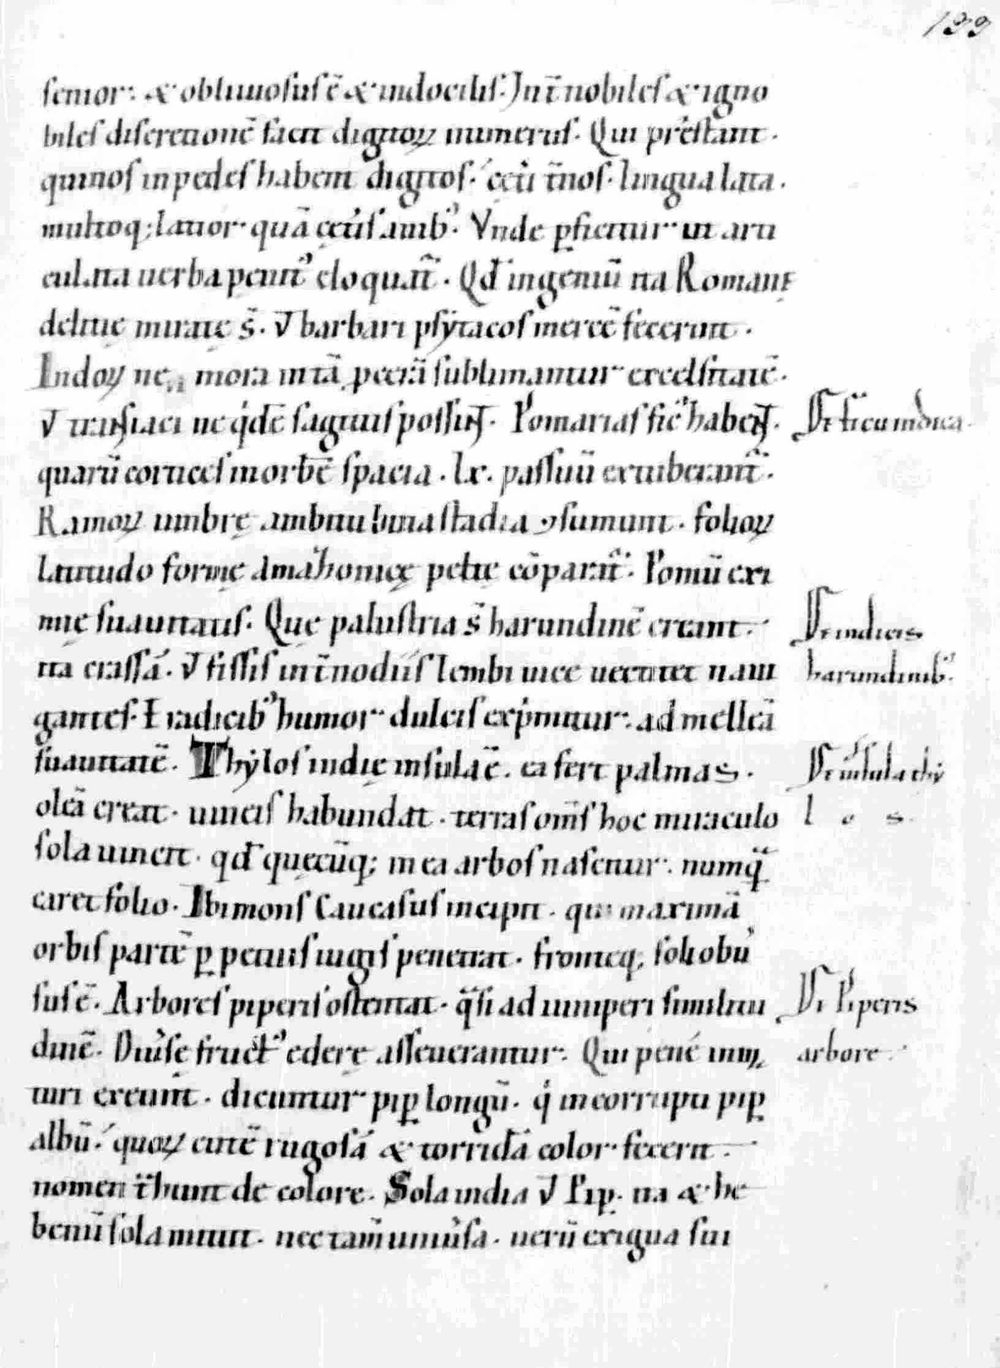 199
senior· & obliuiosus ē & indocilis· Int̄ nobiles & igno
biles discretionē facit digitoꝝ numerus· Qui prestant·
quinos in pedes habent digitos· cęti t̄nos· lingua lata·
multoq; latior· quā cęt̄is auib᾿· Vnde ꝑficitur· ut arti
culata uerba penit᾿ eloquat̄· Qđ ingeniū ita Romanę
delitię miratę s̄· ut̄ barbari psytacos mercē fecerunt·
Indoꝝ nemora in tā pcerā sublimantur excelsitatē·
ut̄ transiaci ne q̇dē sagittis possint· Pomarias fic᾿ habent·
De ficu indica·
quarū cortices in orbē spacia· lx· passuū extuberant̄·
Ramoꝝ umbrę ambitu bina stadia ꝯsumunt· folioꝝ
latitudo formę Amazonicę peltę cōparat̄· Pomū exi
mię suauitatis· Quę palustria s̄ harundinē creant·
De indicis
ita crassā· ut̄ fissis int̄nodiis lembi uice uectitet naui
harundinib᾿·
gantes· E radicib᾿ humor dulcis exp̄mitur· ad melleā
suauitatē· Thylos indię insula ē· ea fert palmas·
De insula thy
oleā creat· uineis habundat· terras om̄s hoc miraculo
l o s·
sola uincit· qđ quęcūq; in ea arbos nascitur· numq̄
caret folio· Ibi mons Caucasus incipit· qui maximā
orbis partē ꝑpetuis iugis penetrat· fronteq; soli obu
sus ē· Arbores piperis ostentat· q̄si ad iuniperi similitu
De Piperis
dinē· Diūse fruct᾿ edere asseuerantur· Qui pene inm̄
arbore·
turi exeunt· dicuntur pip̱ longū· q̇ incorrupti pip̱
albū· quoꝝ cutē rugosā & torridā color fecerit·
nomen t̄hunt de colore· Sola india ut̄ Pip̱· ita & he
benū sola mittit· nec tam̄ uniūsa· uerū exigua sui